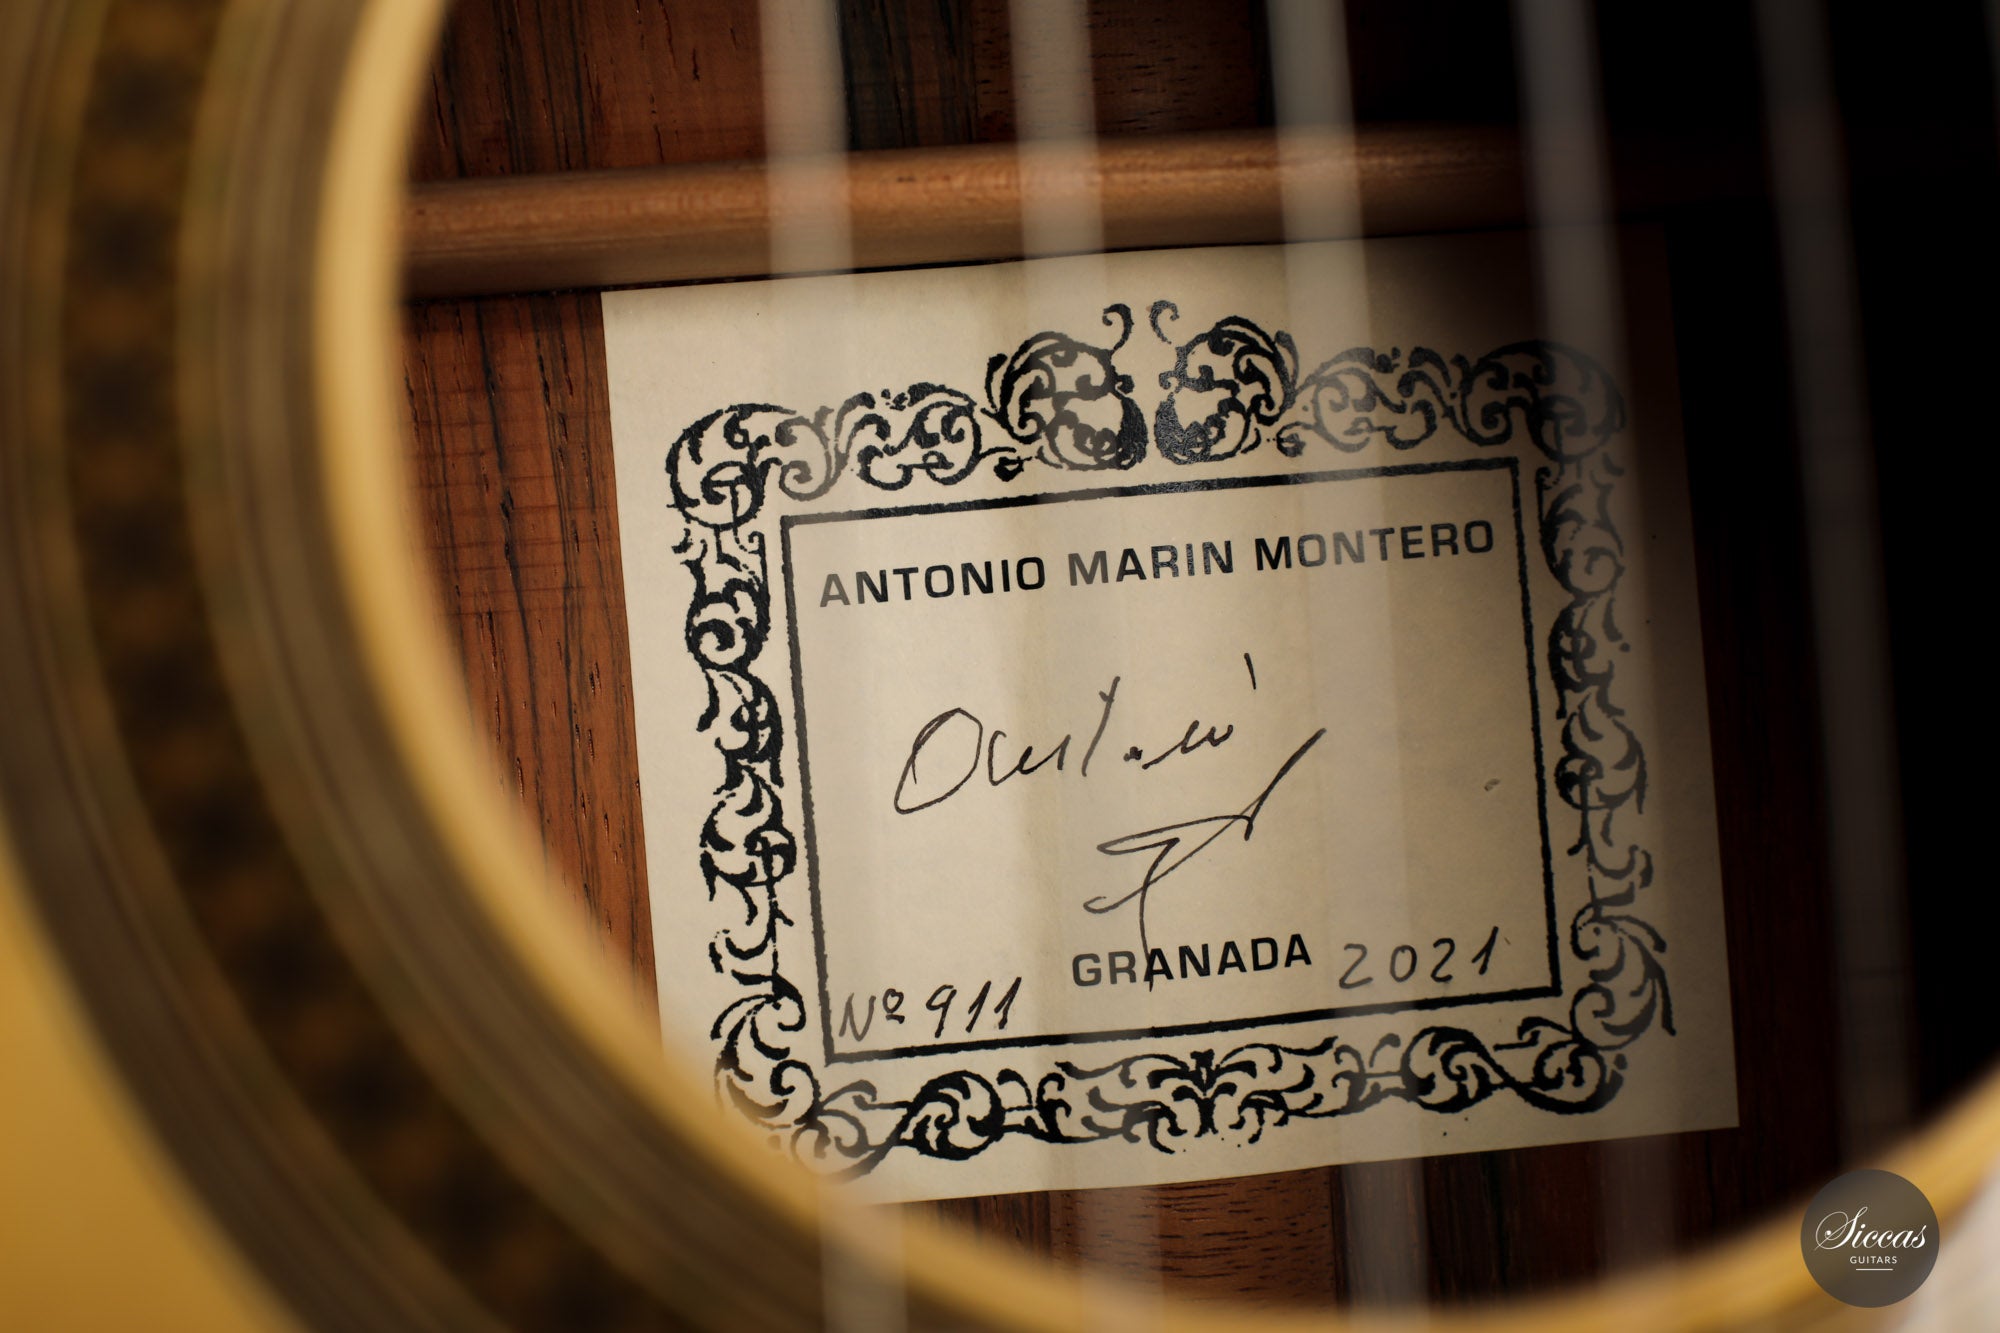 ANTONIO MARIN MONTERO
GRANADA 2021
Nº 911
Siccas
GUITARS